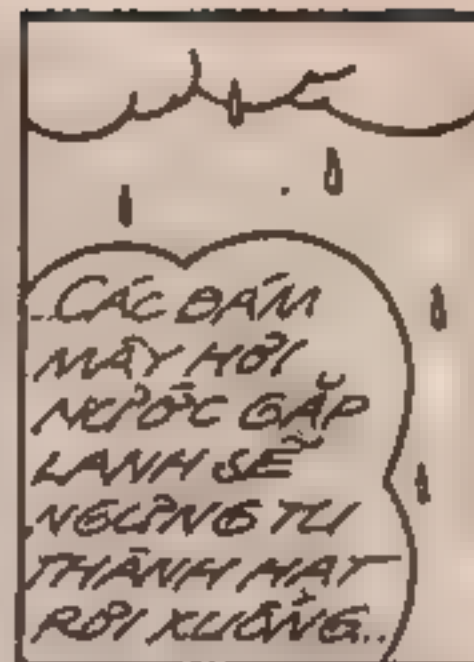 ...CÁC ĐÁM
MÂY HƠI
NƯỚC GẶP
LẠNH SẼ
NGƯNG TỤ
THÀNH HẠT
RƠI XUỐNG...